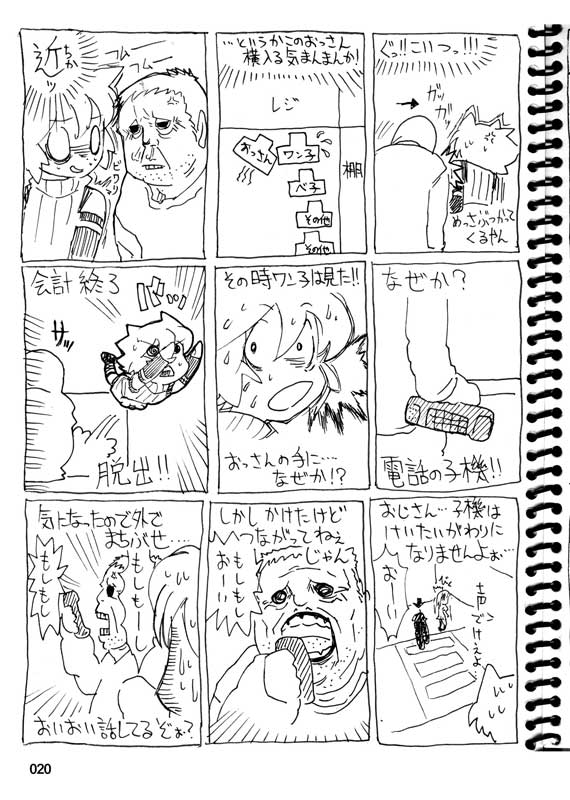 ぐっ!!こいつっ!!!
ガッ
ガッ
めっさぶつかって
くるやん
…というかこのおっさん
横入る気まんまんか!
レジ
おっさん
ワン子
ベ子
その他
その他
棚
近ッ
ちか
フムー
フムー
ピクリ
なぜか?
電話の子機!!
その時ワン子は見た!!
おっさんの手に…
なぜか!?
会計終了
バッ…
サッ
脱出!!
おじさん…子機は
けいたいがわりに
なりませんよぉ…
おーい
声でけえよ…
しかしかけたけど
つながってねぇ
じゃん
もしもーし
おーい
気になったので外で
まちぶせ…
もしもーし
もしもし
おいおい話してるぞぉ?
020